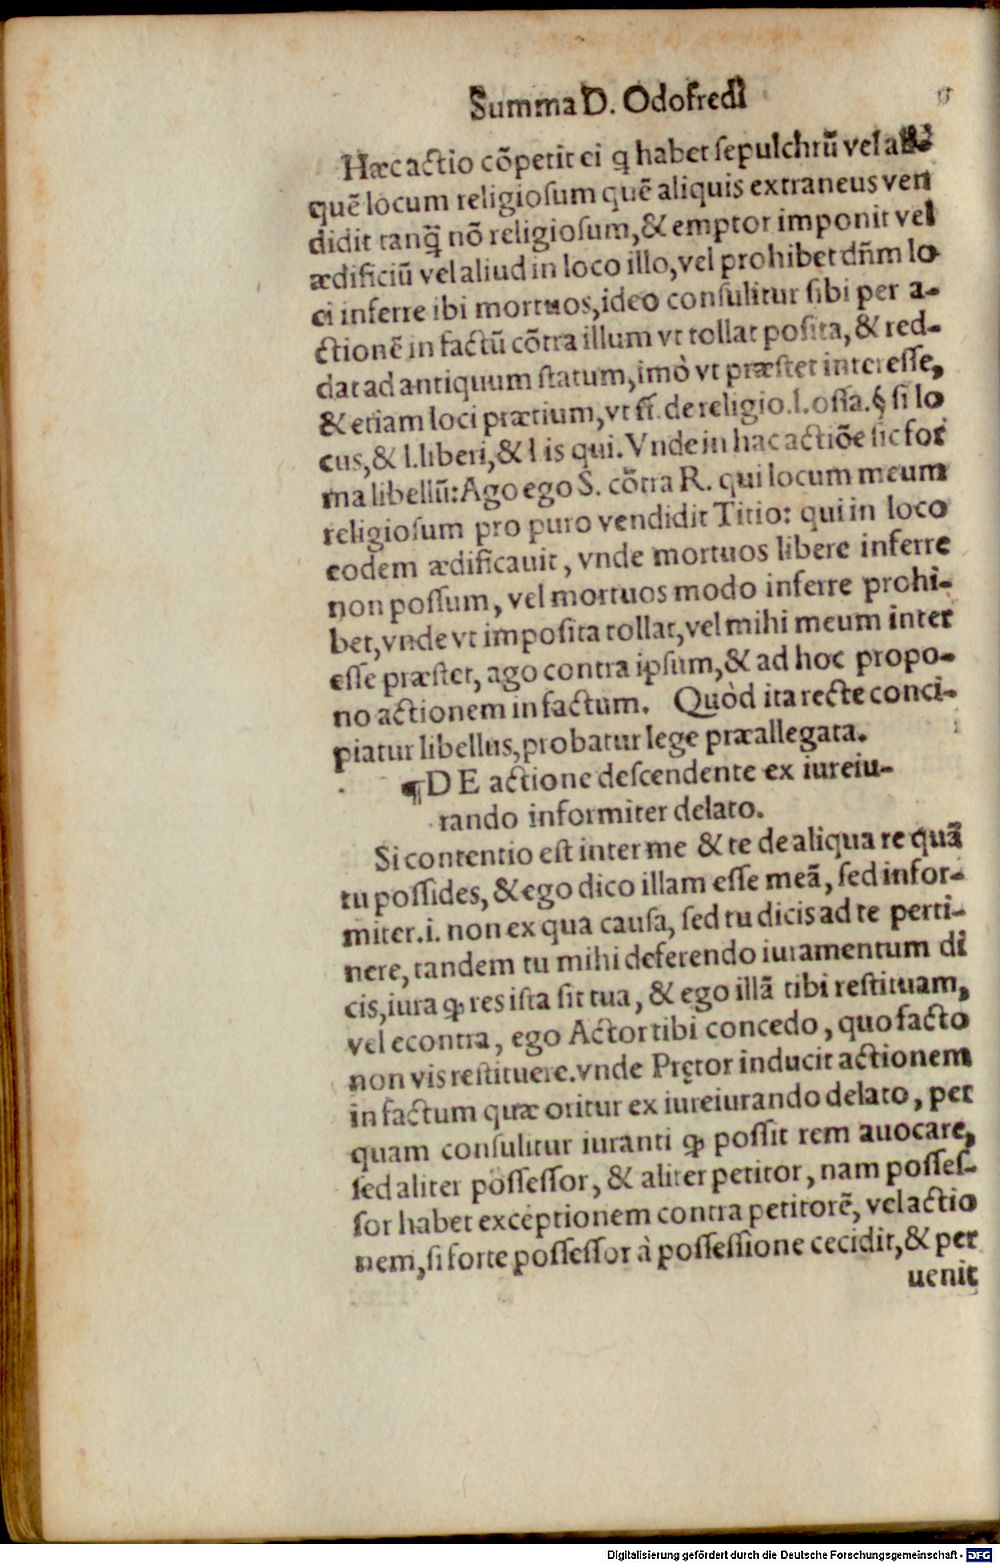 Summa D. Odofredi
Hæc actio cõpetit ei q̃ habet sepulchrũ vel ali-
quẽ locum religiosum quẽ aliquis extraneus ven
didit tanq̃ nõ religiosum, & emptor imponit vel
ædificiũ vel aliud in loco illo, vel prohibet dñm lo
ci inferre ibi mortuos, ideo consulitur sibi per a-
ctionẽ in factũ cõtra illum vt tollat posita, & red-
dat ad antiquum statum, imò vt præstet interesse,
& etiam loci prætium, vt ff. de religio. l. ossa. § si lo
cus, & l. liberi, & l is qui. Vnde in hac actiõe sic for
ma libellũ: Ago ego S. cõtra R. qui locum meum
religiosum pro puro vendidit Titio: qui in loco
eodem ædificauit, vnde mortuos libere inferre
non possum, vel mortuos modo inferre prohi-
bet, vnde vt imposita tollat, vel mihi meum inter
esse præstet, ago contra ipsum, & ad hoc propo-
no actionem in factum. Quòd ita recte conci-
piatur libellus, probatur lege præallegata.
¶ DE actione descendente ex iureiu-
rando informiter delato.
Si contentio est inter me & te de aliqua re quã
tu possides, & ego dico illam esse meã, sed infor-
miter. i. non ex qua causa, sed tu dicis ad te perti-
nere, tandem tu mihi deferendo iuramentum di
cis, iura ꝙ res ista sit tua, & ego illã tibi restituam,
vel econtra, ego Actor tibi concedo, quo facto
non vis restituere. vnde Prętor inducit actionem
in factum quæ oritur ex iureiurando delato, per
quam consulitur iuranti ꝙ possit rem auocare,
sed aliter possessor, & aliter petitor, nam posses-
sor habet exceptionem contra petitorẽ, vel actio
nem, si forte possessor à possessione cecidit, & per
uenit
Digitalisierung gefördert durch die Deutsche Forschungsgemeinschaft - DFG